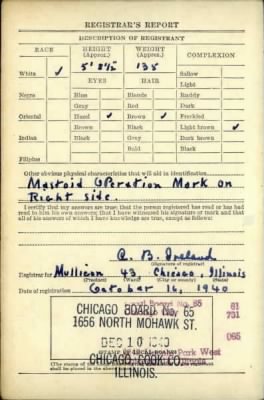 REGISTRAR'S REPORT
DESCRIPTION OF REGISTRANT
RACE HEIGHT (Approx.) WEIGHT (Approx.) COMPLEXION
White ✓ 5' 8½ 135 Sallow
EYES HAIR Light
Negro Blue Blonde Ruddy
Gray Red Dark
Oriental Hazel ✓ Brown ✓ Freckled
Brown Black Light brown ✓
Indian Black Gray Dark brown
Bald Black
Filipino
Other obvious physical characteristics that will aid in identification
Mastoid Operation Mark on
Right side.
I certify that my answers are true; that the person registered has read or has had
read to him his own answers; that I have witnessed his signature or mark and that
all of his answers of which I have knowledge are true, except as follows:
A. B. Ireland
(Signature of registrar)
Registrar for Mulligan 43, Chicago, Illinois
(Precinct) (Ward) (City or county) (State)
Date of registration October 16, 1940
Local Board No. 65 61
CHICAGO BOARD No. 65 731
1656 NORTH MOHAWK ST. 065
DEC 10 1940
Park West
CHICAGO, COOK CO.
ILLINOIS.
(The stamp of
shall be placed in the above